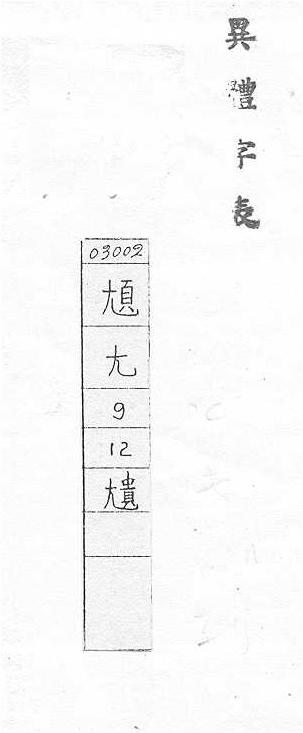 異體字表
03002
尢
9
12
尵